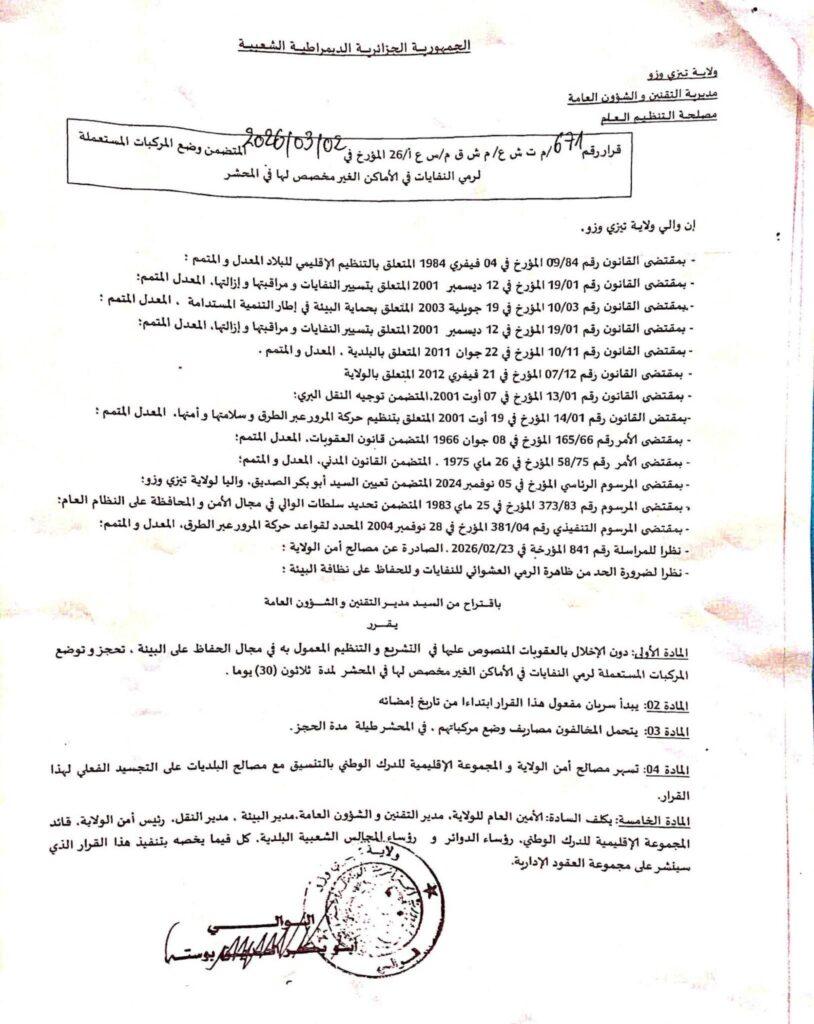 الجمهورية الجزائرية الديمراطية الشعبية
ولاية تيزي وزو
مديرية التقنين و الشؤون العامة
مصلحة التنظيم العام
قرار رقم 671/م ت ش ع/ م ش ق م/س ع أ/26 المؤرخ في 2026/03/02 المتضمن وضع المركبات المستعملة
لرمي النفايات في الأماكن الغير مخصص لها في المحشر
إن والي ولاية تيزي وزو.
- بمقتضى القانون رقم 09/84 المؤرخ في 04 فيفري 1984 المتعلق بالتنظيم الإقليمي للبلاد المعدل و المتمم ؛
- بمقتضى القانون رقم 19/01 المؤرخ في 12 ديسمبر 2001 المتعلق بتسيير النفايات و مراقبتها و إزالتها، المعدل المتمم:
- بمقتضى القانون رقم 10/03 المؤرخ في 19 جويلية 2003 المتعلق بحماية البيئة في إطار التنمية المستدامة ، المعدل المتمم :
- بمقتضى القانون رقم 19/01 المؤرخ في 12 ديسمبر 2001 المتعلق بتسيير النفايات و مراقبتها و إزالتها، المعدل المتمم:
- بمقتضى القانون رقم 10/11 المؤرخ في 22 جوان 2011 المتعلق بالبلدية ، المعدل و المتمم .
- بمقتضى القانون رقم 07/12 المؤرخ في 21 فيفري 2012 المتعلق بالولاية
- بمقتضى القانون رقم 13/01 المؤرخ في 07 أوت 2001،المتضمن توجيه النقل البري:
-بمقتض القانون رقم 14/01 المؤرخ في 19 أوت 2001 المتعلق بتنظيم حركة المرور عبر الطرق و سلامتها و أمنها، المعدل المتمم :
- بمقتضى الأمر رقم 165/66 المؤرخ في 08 جوان 1966 المتضمن قانون العقوبات، المعدل المتمم:
- بمقتضى الأمر رقم 58/75 المؤرخ في 26 ماي 1975 ، المتضمن القانون المدني، المعدل و المتمم:
- بمقتضى المرسوم الرئاسي المؤرخ في 05 نوفمبر 2024 المتضمن تعيين السيد أبو بكر الصديق، واليا لولاية تيزي وزو:
- بمقتضى المرسوم رقم 373/83 المؤرخ في 25 ماي 1983 المتضمن تحديد سلطات الوالي في مجال الأمن و المحافظة على النظام العام:
- بمقتضى المرسوم التنفيذي رقم 381/04 المؤرخ في 28 نوفمبر 2004 المحدد لقواعد حركة المرور عبر الطرق، المعدل و المتمم:
- نظرا للمراسلة رقم 841 المؤرخة في 2026/02/23 ، الصادرة عن مصالح أمن الولاية :
- نظرا لضرورة الحد من ظاهرة الرمي العشوائي للنفايات و للحفاظ على نظافة البيئة :
باقتراح من السيد مدير التقنين و الشؤون العامة
يقرر
المادة الأولى: دون الإخلال بالعقوبات المنصوص عليها في التشريع و التنظيم المعمول به في مجال الحفاظ على البيئة ، تحجز و توضع
المركبات المستعملة لرمي النفايات في الأماكن الغير مخصص لها في المحشر لمدة ثلاثون (30) يوما .
المادة 02: يبدأ سريان مفعول هذا القرار ابتداءا من تاريخ إمضائه
المادة 03: يتحمل المخالفون مصاريف وضع مركباتهم ، في المحشر طيلة مدة الحجز .
المادة 04: تسهر مصالح أمن الولاية و المجموعة الإقليمية للدرك الوطني بالتنسيق مع مصالح البلديات على التجسيد الفعلي لهذا
القرار.
المادة الخامسة: يكلف السادة: الأمين العام للولاية، مدير التقنين و الشؤون العامة،مدير البيئة ، مدير النقل، رئيس أمن الولاية، قائد
المجموعة الإقليمية للدرك الوطني، رؤساء الدوائر و رؤساء المجالس الشعبية البلدية، كل فيما يخصه بتنفيذ هذا القرار الذي
سينشر على مجموعة العقود الإدارية.
ولاية تيزي وزو
الوالي
أبو بكر الصديق بوستة
الوالي